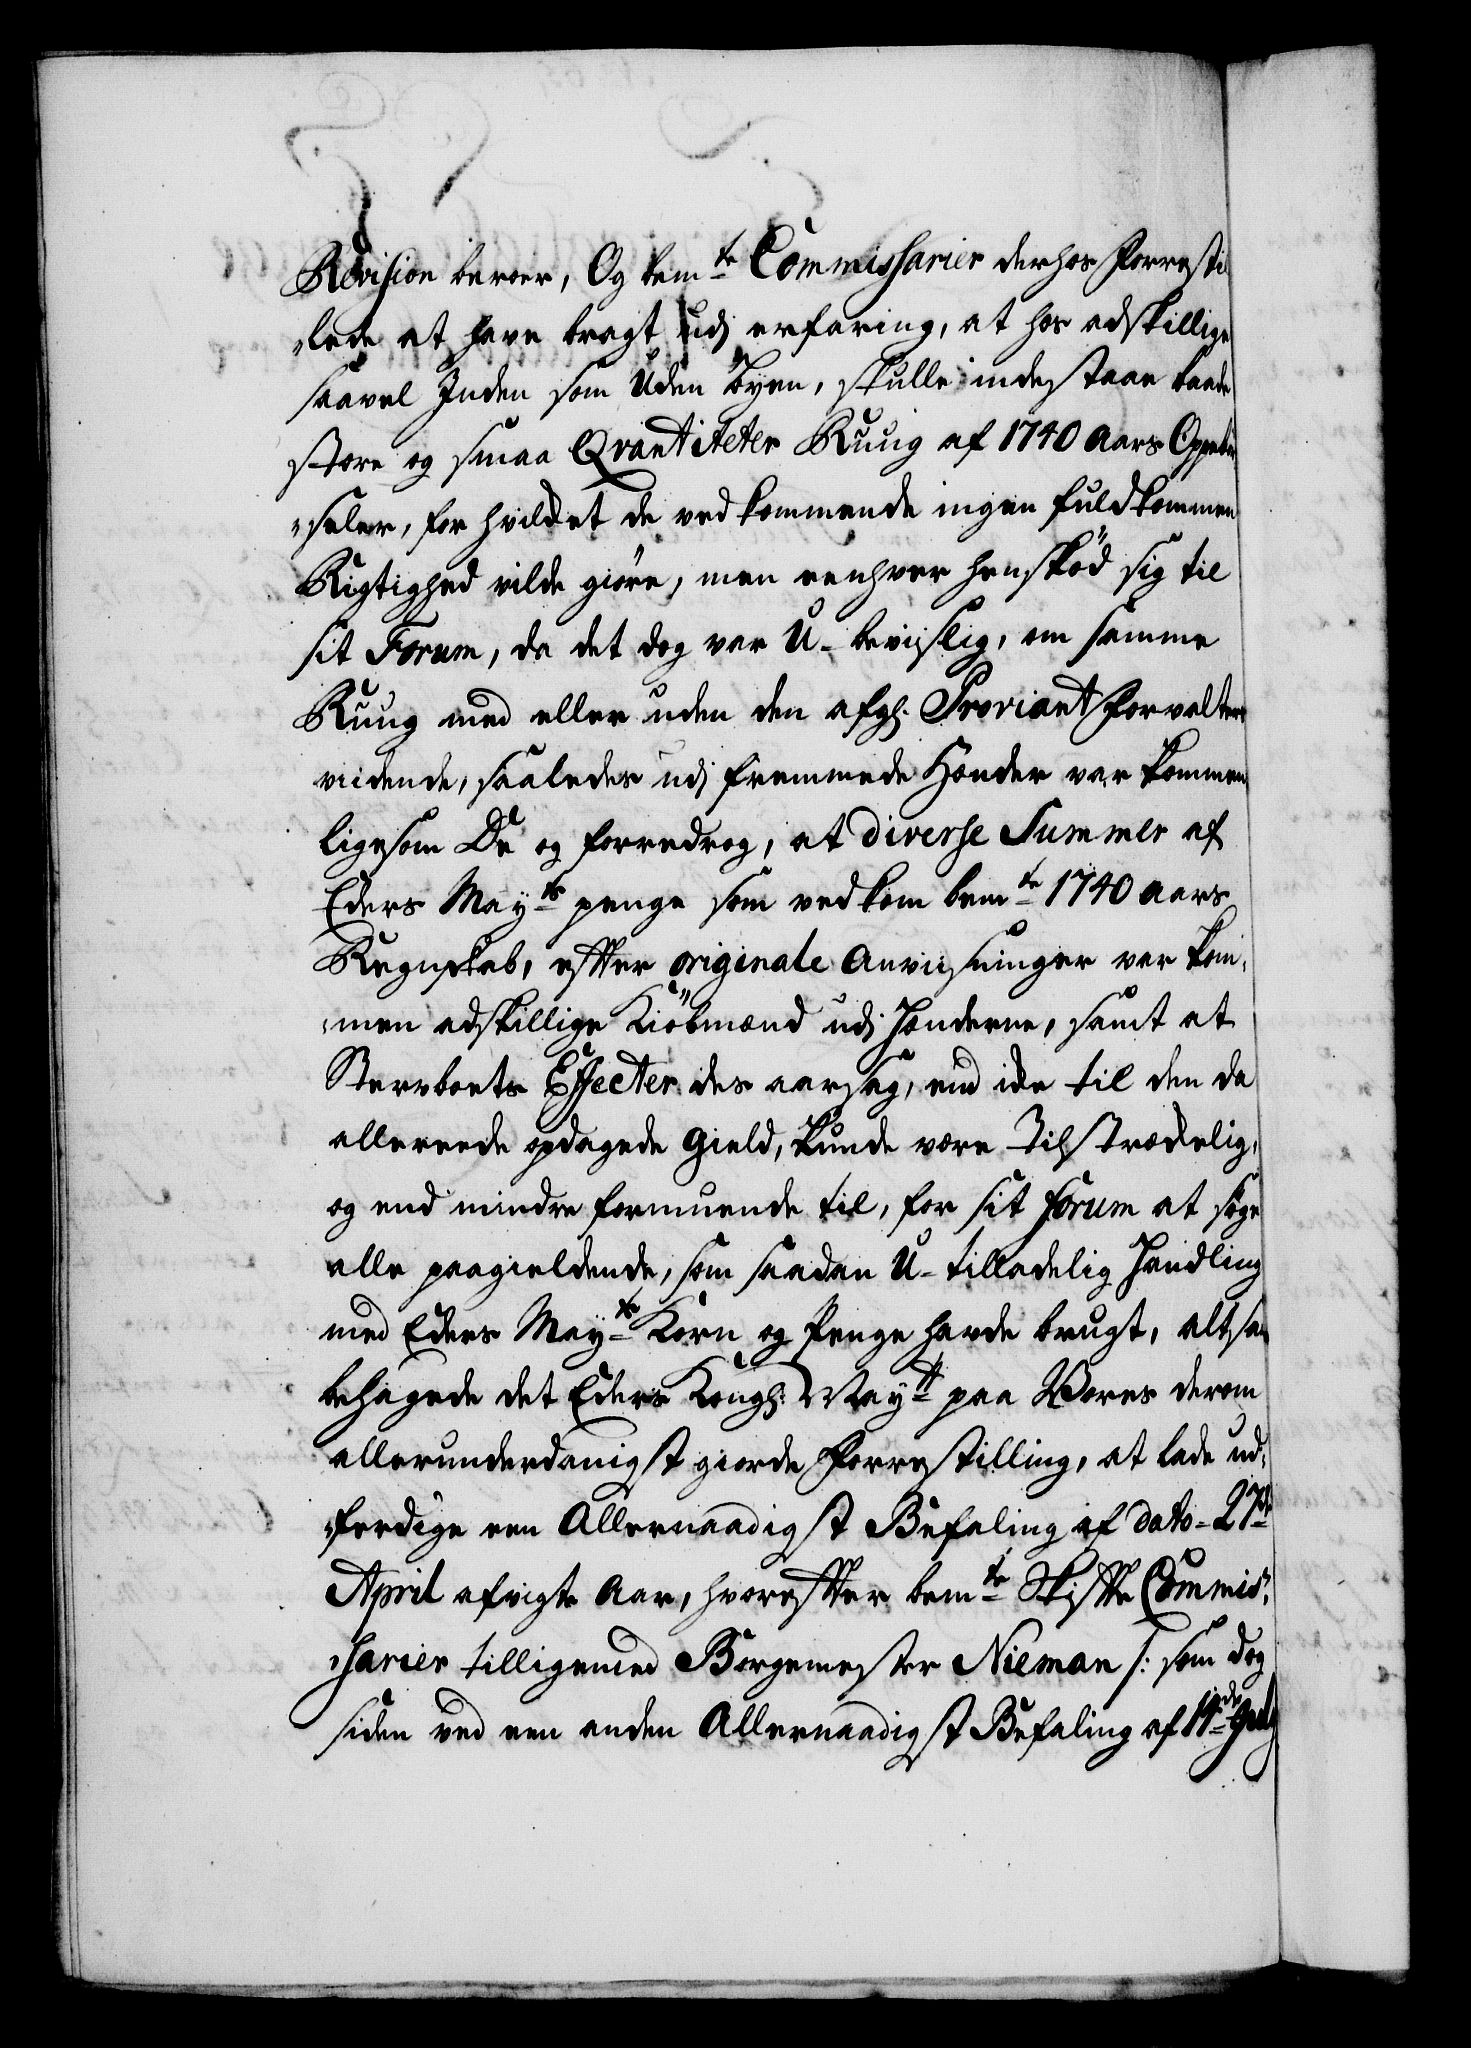 Revision beroer, Og bem.te Commissarier derhos forresti
„lede at have bragt udj erfaring, at hos adskillige
saavel Inden som Uden Byen, skulle indestaae baade
store og smaa Qvantiteter Ruug af 1740 Aars Oppebør
„seler, for hvilket de vedkommende ingen fuldkommen
Rigtighed vilde giøre, men eenhver henskød sig til
sit Forum, da det dog var U-beviislig, om samme
Ruug med eller uden den afg: Proviantforvalters
viidende, saaledes udj fremmede Hænder var kommen
ligesom De og forredrog, at diverse Summer af
Eders May.ts penge som vedkom bem.te 1740 Aars
Regnskab, effter originale Anviisninger var kom„
„men adskillige Kiøbmænd udj Hænderne, samt at
Stervboets Effecter des aarsag, end icke til den da
allereede opdagede Gield, kunde være tilstrækkelig,
og end mindre formuende til, for sit forum at søge
alle paagieldende, som saadan U-tilladelig Handling
med Eders May.ts Korn og Penge havde brugt, altsaa
behagede det Eders Kongl: May.tt paa Vores derom
allerunderdanigst giorde Forrestilling, at lade ud„
„ferdige een Allernaadigst Befaling af dato 27.de
April afvigte Aar, hvoreffter bem.te Skiffte Commis„
„sarier tilligemed Borgemester Nieman /: som dog
siden ved een anden Allernaadigst Befaling af 14.de July